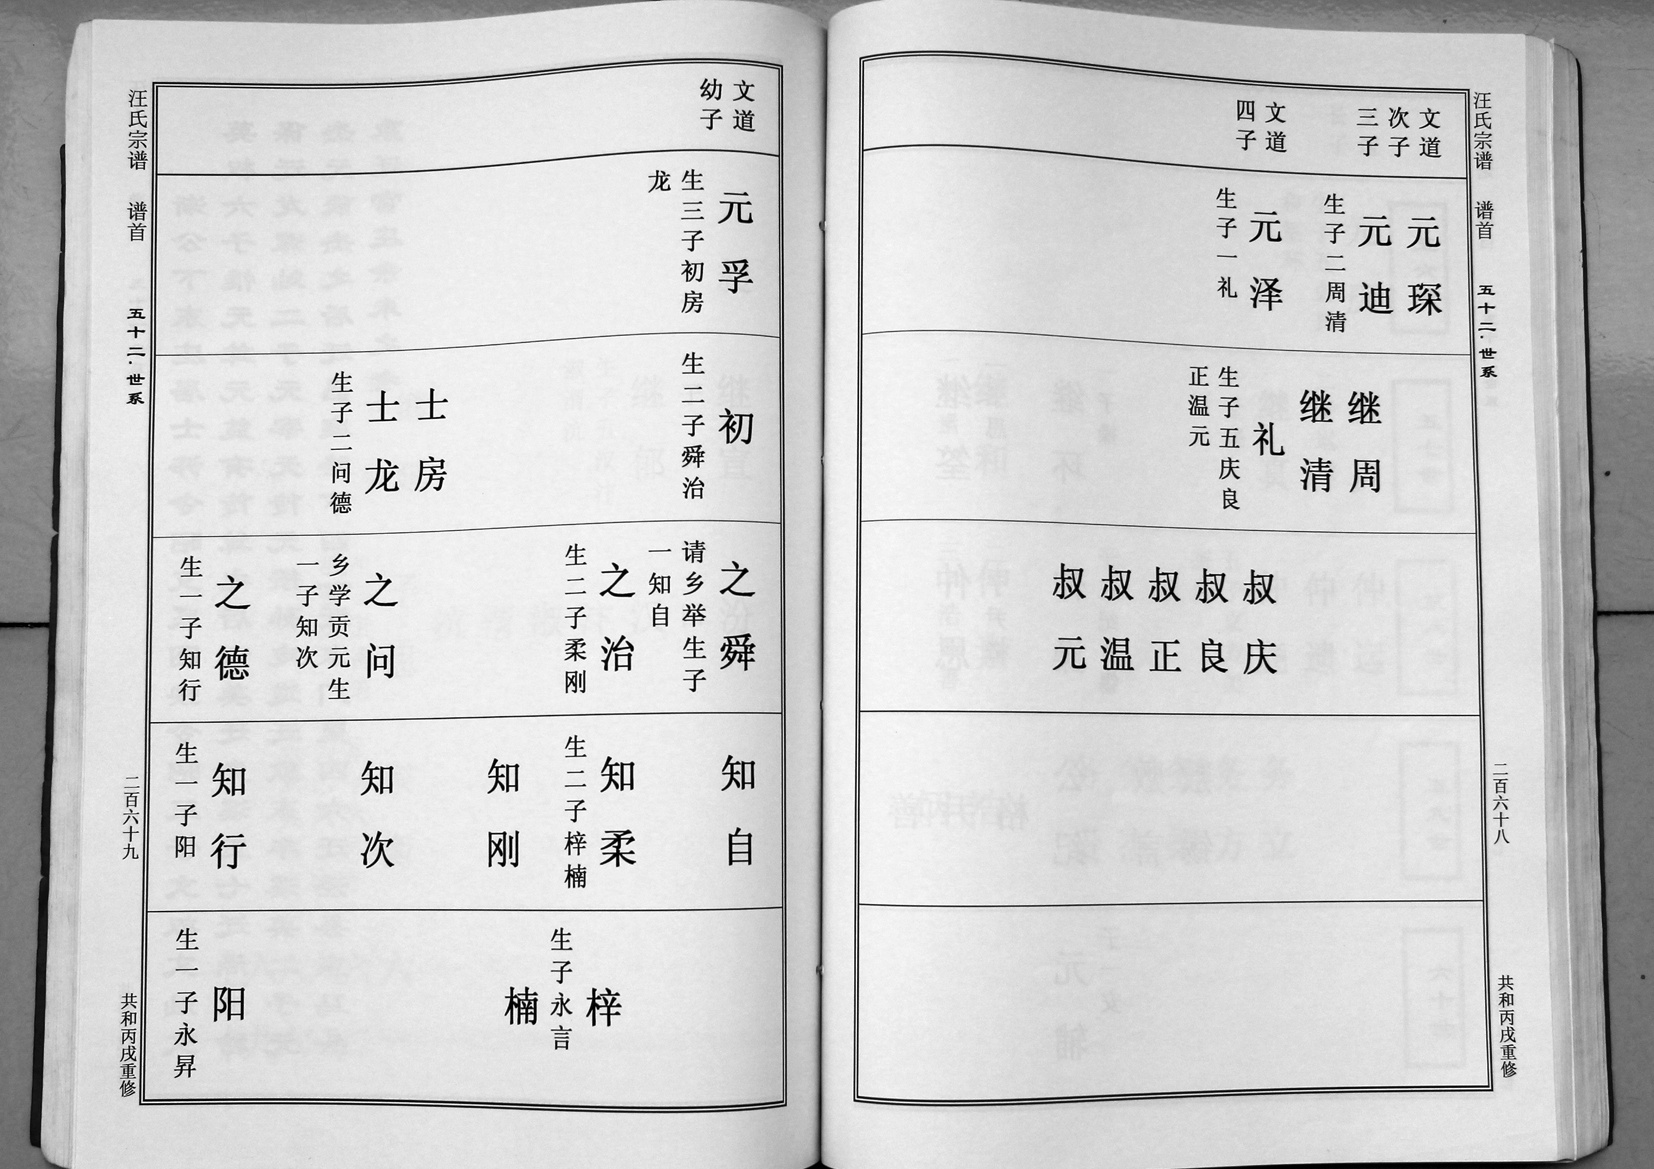 汪氏宗谱 谱首 五十二·世系 二百六十八 共和丙戌重修
文道
次子
三子
文道
四子
元琛
元迪
生子二周清
元泽
生子一礼
继周
继清
继礼
生子五庆良
正温元
叔庆
叔良
叔正
叔温
叔元
文道
幼子
元孚
生三子初房
龙
初
生二子舜治
士房
士龙
生子二问德
之舜
请乡举生子
一知自
之治
生二子柔刚
之问
乡学贡元生
一子知次
之德
生一子知行
知自
知柔
生二子梓楠
知刚
知次
知行
生一子阳
梓
生子永言
楠
阳
生一子永昇
汪氏宗谱 谱首 五十二·世系 二百六十九 共和丙戌重修